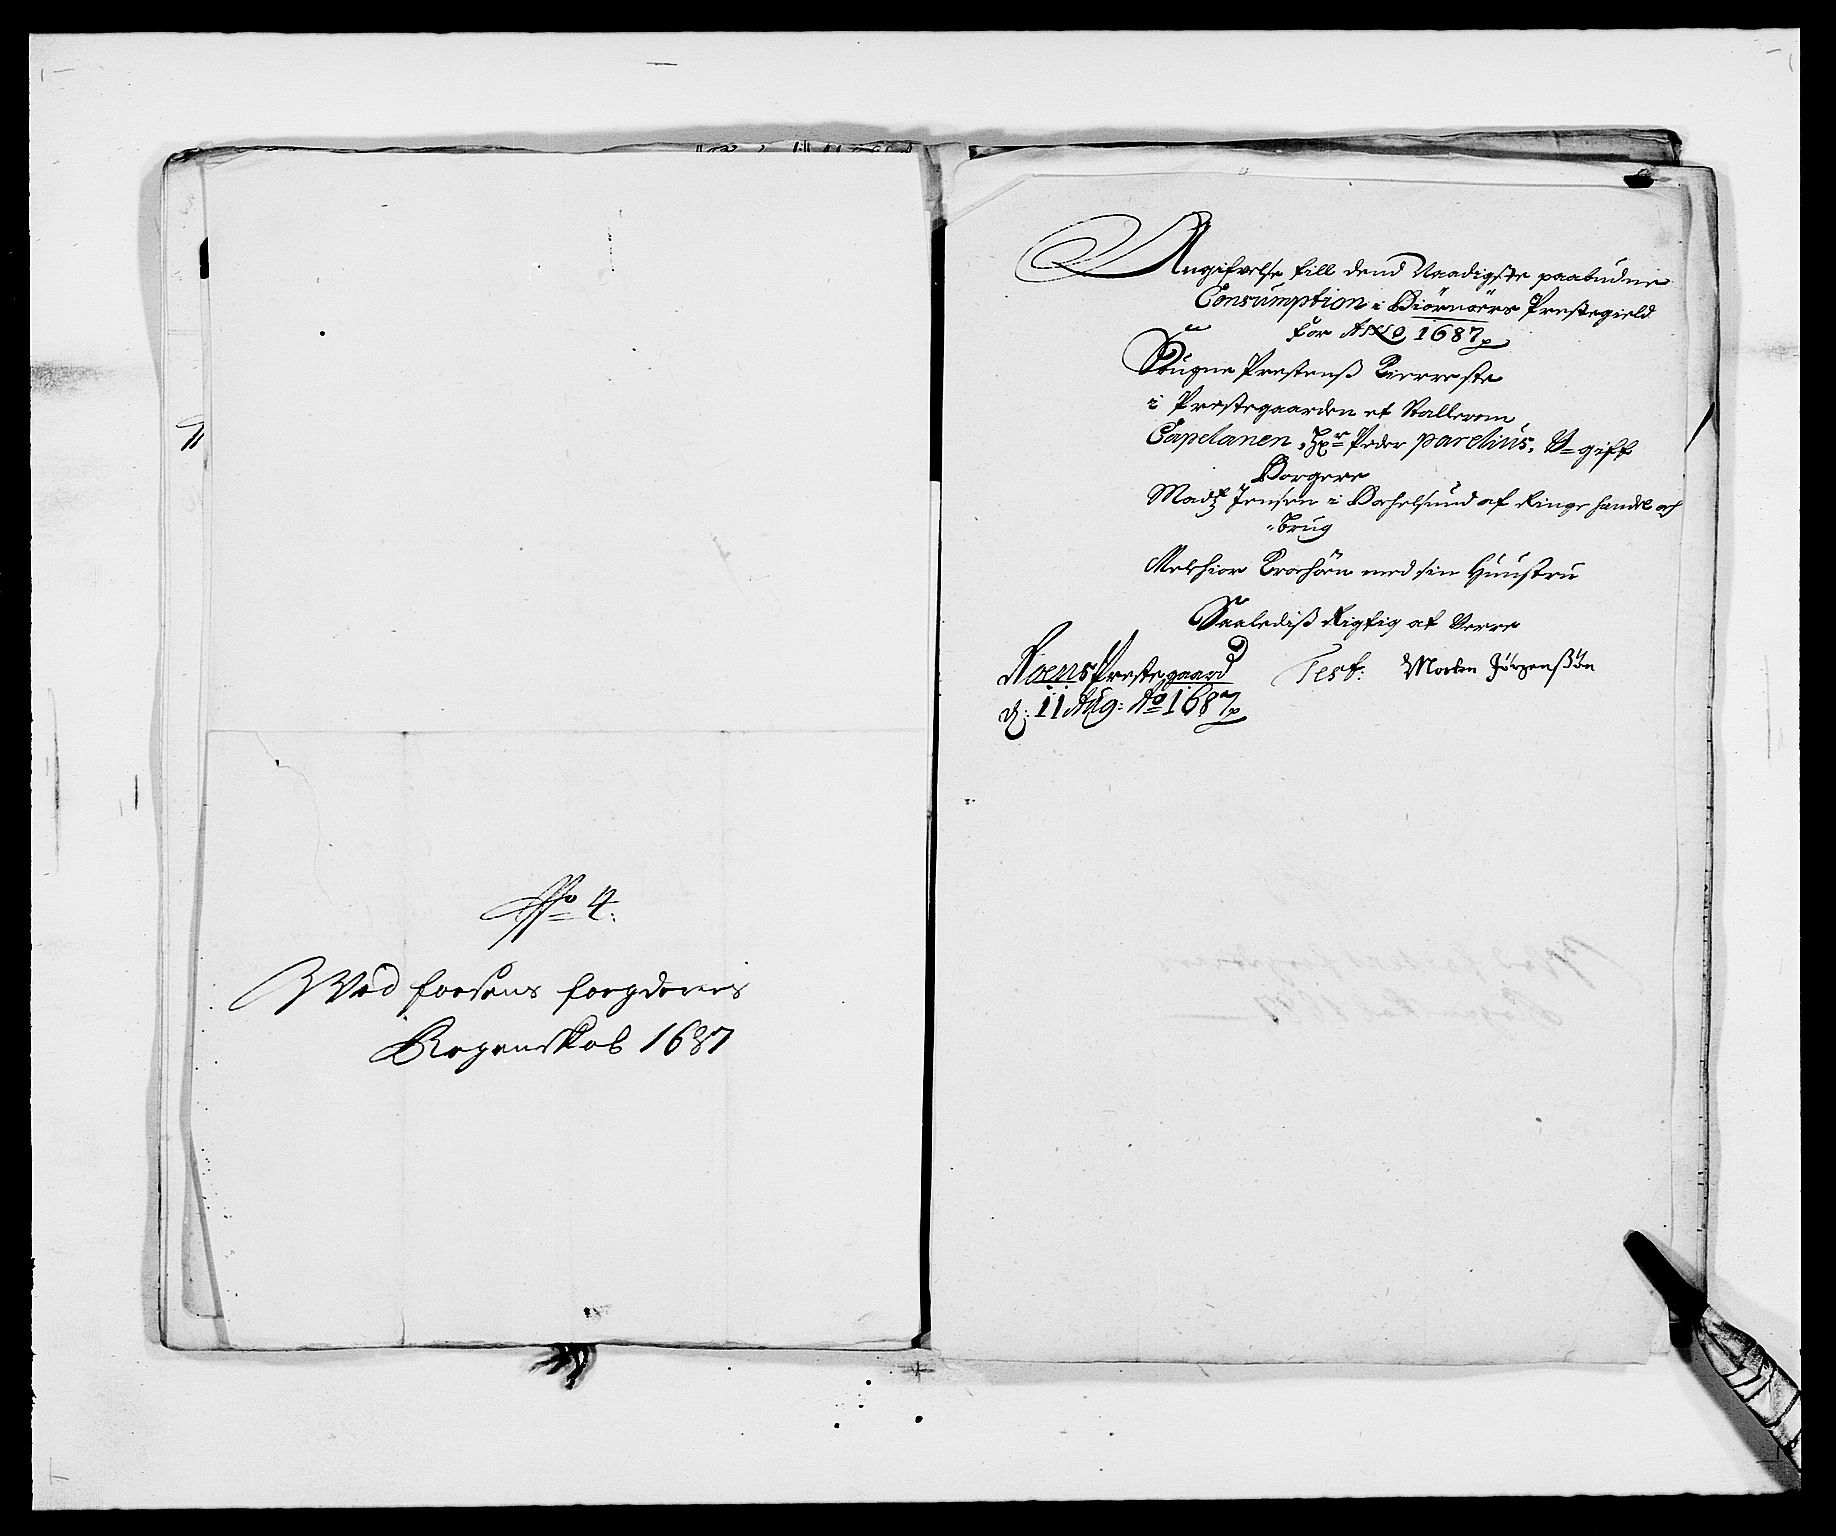 No 4:
Wed Fosens fogderies
Regenskab 1687
Angifvelse till dend Naadigste paabudne
Consumption i Biörnöers Prestegield
for ANNO 1687
Sougne Prestens
i Prestegaarden et
Capelanen Hr Peder parelius, V=gift
Borgere
Madtz Jensen i af Ringe handel och
brug
Melchior med sin Huustru
Saaledis Rigtig at Verre
Noens Prestegaard
d: 11 Aug: Ao 1687
Test: Morten Jörgensßön